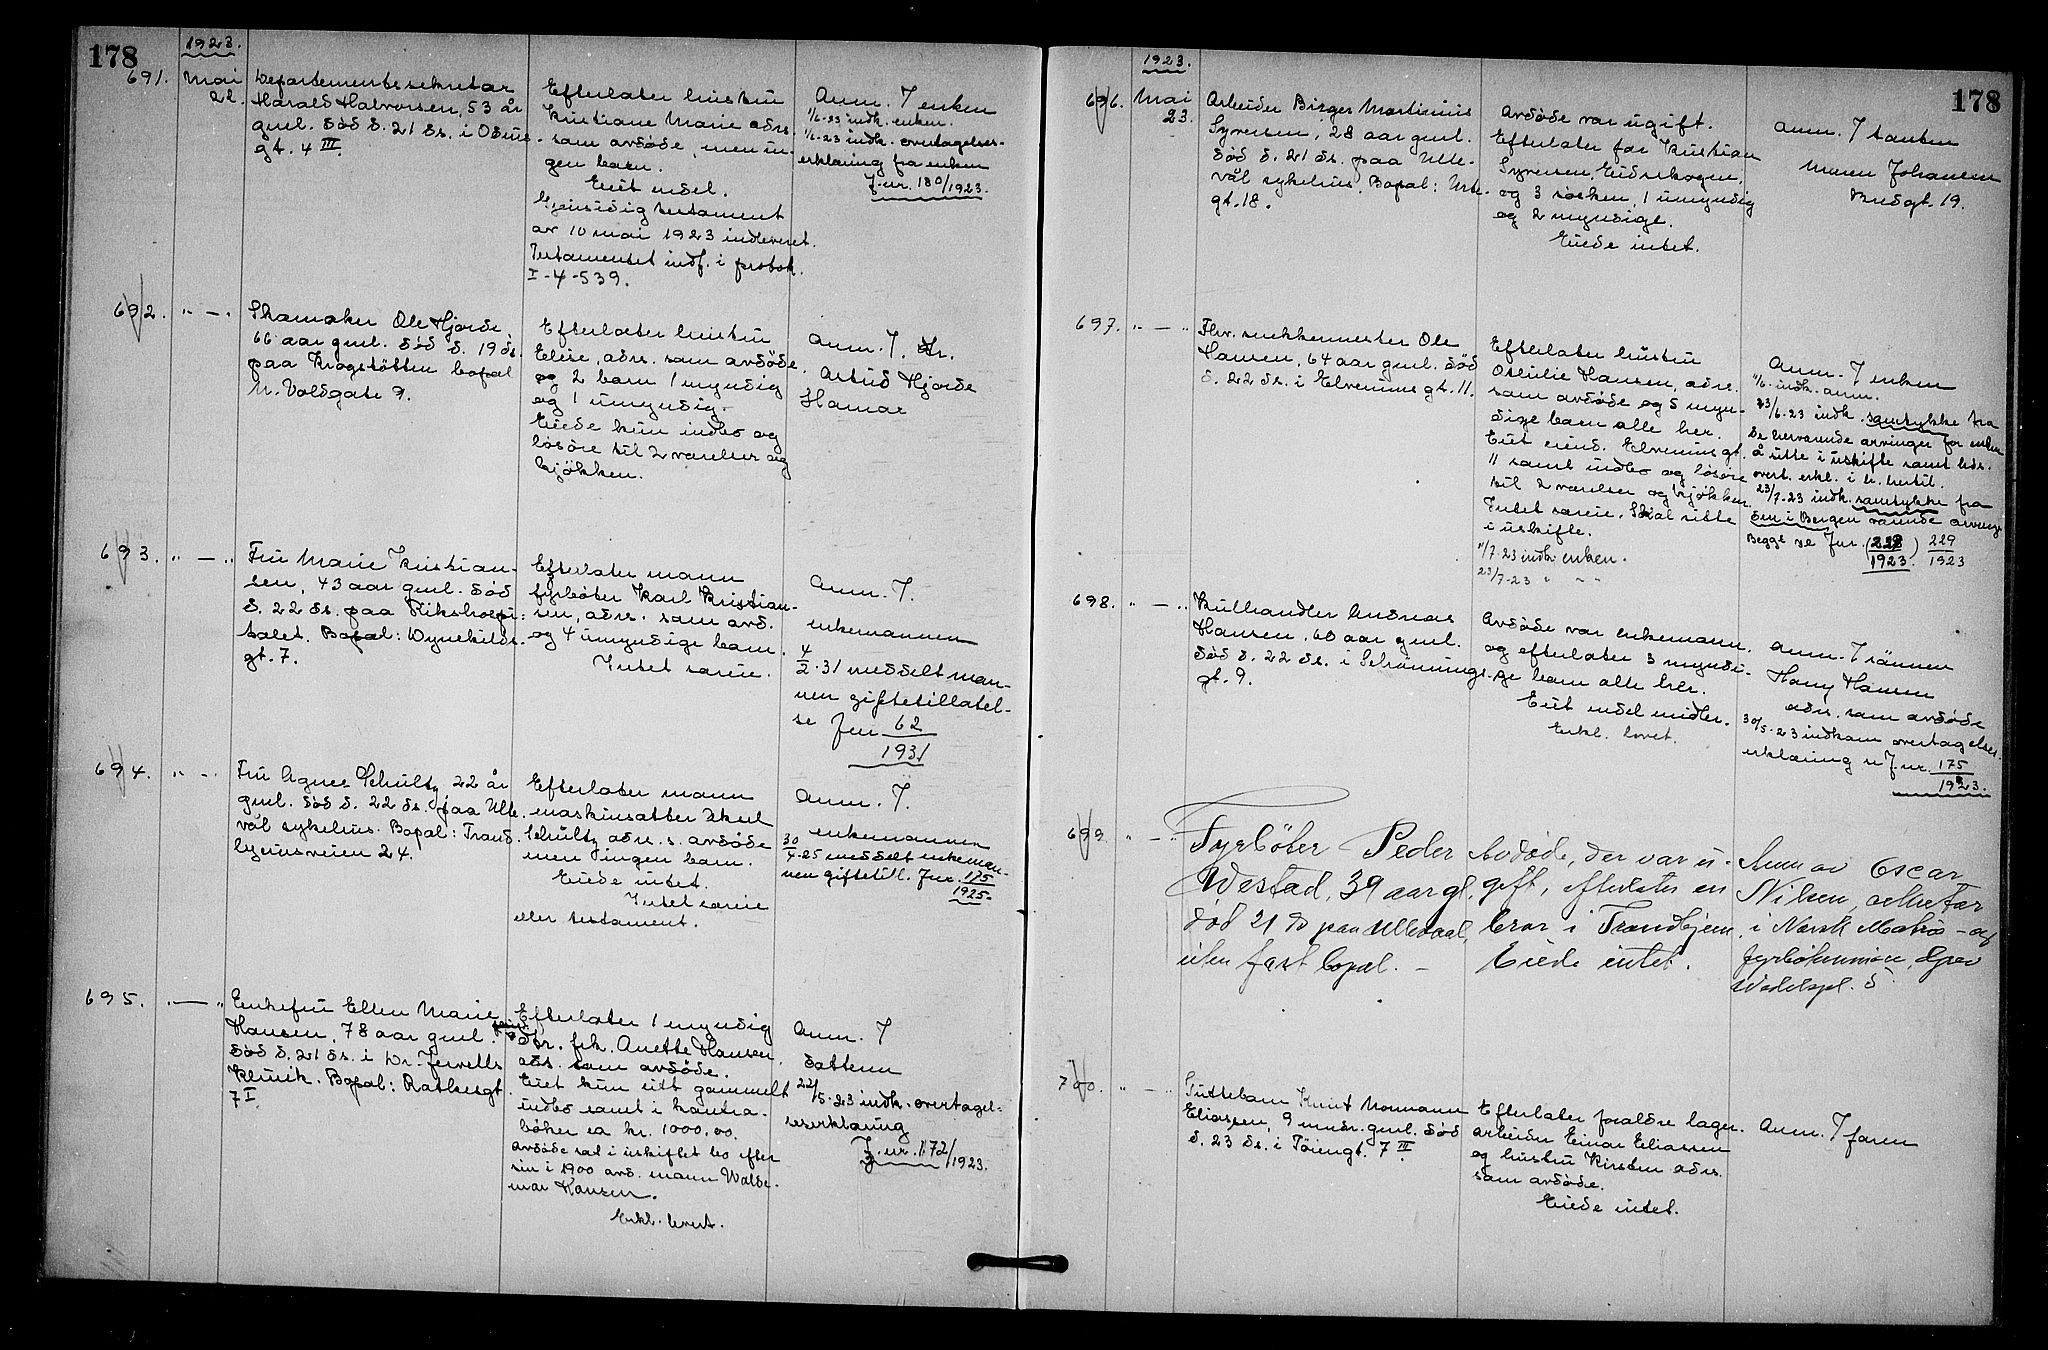 178
1923.
691.
Mai
22.
Departementssekretær
Harald Halvorsen, 53 år
gml. død d. 21 ds. i Odins
gt. 4 III.
Efterlater hustru
Kristiane Marie adrs.
som avdøde, men in-
gen barn.
Eiet endel.
Gjensidig testament
av 10 mai 1923 indleveret.
Testamentet indf. i protok.
I-4-539.
Anm. 7 enken
1/6-23 indk. enken.
1/6-23 indk. overtagelses-
erklæring fra enken
J.nr. 180/1923.
692.
" — "
Skomaker Ole Hjorde,
66 aar gml. død d. 19 ds.
paa Krogstøtten bopæl
N. Voldgate 9.
Efterlater hustru
Elise, adrs. som avdøde
og 2 barn 1 myndig
og 1 umyndig.
Eiede kun indbo og
løsøre til 2 værelser og
kjøkken.
Anm. 7.
Hjorde
Hamar
693.
" — "
Fru Marie Kristian-
sen, 43 aar gml. død
d. 22 ds. paa Rikshospi-
talet. Bopæl: Dynekilds-
gt. 7.
Efterlater mann
fyrbøter Karl Kristian-
sen, adrs. som avd.
og 4 umyndige barn.
Intet særeie.
Anm. 7.
enkemannen
4/2-31 meddelt man-
nen giftetillatel-
se Jnr 62/1931
694.
" — "
Fru Agnes Schultz 22 år
gml. død d. 22 ds. paa Ulle-
vål sykehus. Bopæl: Trond-
hjemsveien 24.
Efterlater mann
Schultz adrs. s. avdøde
men ingen barn.
Eiede intet.
Intet særeie
eller testament.
Anm. 7.
enkemannen
30/4-25 meddelt enkeman-
nen giftetill. Jnr. 175/1925.
695.
" — "
Enkefru Ellen Marie
Hansen, 78 aar gml.
død d. 21 ds. i Dr. Jervells
Klinik. Bopæl: Rathkesgt
7 I
Efterlater 1 myndig
dtr. frk. Anette Hansen,
adrs. som avdøde.
Eiet kun litt gammelt
indbo samt i kontra-
bøker ca kr. 1000,00.
Avdøde sad i uskiftet bo efter
sin i 1900 avd. mann Walde-
mar Hansen.
Erkl. levert.
Anm. 7
datteren
22/5-23 indk. overtagel-
seserklæring
J.nr. 172/1923.
178
1923.
696.
Mai
23.
Arbeider Birger Martinius
Syversen, 28 aar gml.
død d. 21 ds. paa Ulle-
vål sykehus. Bopæl: Urte-
gt. 18.
Avdøde var ugift.
Efterlater far Kristian
Syversen, Eidskogen,
og 3 søsken, 1 umyndig
og 2 myndige.
Eiede intet.
Anm. 7 tanten
Maren Johansen
Bredgt. 19.
697.
" — "
Fhv. snekkermester Ole
Hansen, 64 aar gml. død
d. 22 ds. i Elvenings gt. 11.
Efterlater hustru
Othilie Hansen, adrs.
som avdøde og 5 myn-
dige barn alle her.
Eiet eiend. Elvenings gt.
11 samt indbo og løsøre
til 2 værelser og kjøkken.
Intet særeie. Skal sitte
i uskifte.
11/7-23 indk. enken.
23/7-23 " — "
Anm. 7 enken
11/6. indk. anm.
23/6.23 indk. samtykke fra
de herværende arvinger for enken
å sitte i uskifte samt
overt. erkl. i hertil.
23/7-23 indk. samtykke fra
den i Bergen værende arving
Begge se Jnr. (228/1923.) 229/1923
698.
" — "
Kulhandler Andreas
Hansen, 60 aar gml.
død d. 22 ds. i Schønnings-
gt. 9.
Avdøde var enkemann
og efterlater 3 myndi-
ge barn alle her.
Eiet endel midler.
Erkl. levet.
Anm. 7 sønnen
Harry Hansen
adrs. som avdøde
30/5-23 indkom overtagelses-
erklæring J.nr. 175/1923.
699
" — "
Fyrbøter Peder
Westad, 39 aar gl.
død 21 ds paa Ullevaal,
uten fast bopæl. —
Avdøde, der var u-
gift, efterlater en
bror i Trondhjem.
Eiede intet.
Anm av Oscar
Nilsen,
i Norsk Matros- og
fyrbøterunion, Grev
Wedelspl. 5
700.
" — "
Guttebarn Knut Normann
Eliassen, 9 mndr. gml. død
d. 23 ds. i Tøiengt. 7 III.
Efterlater forældre lager-
arbeider Einar Eliassen
og hustru Kirsten adrs.
som avdøde.
Eiede intet.
Anm. 7 faren